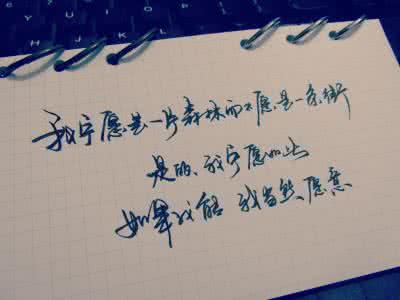 我宁愿是一片森林而不愿是一条街
是的、我宁愿如此
如果我能 我当然愿意